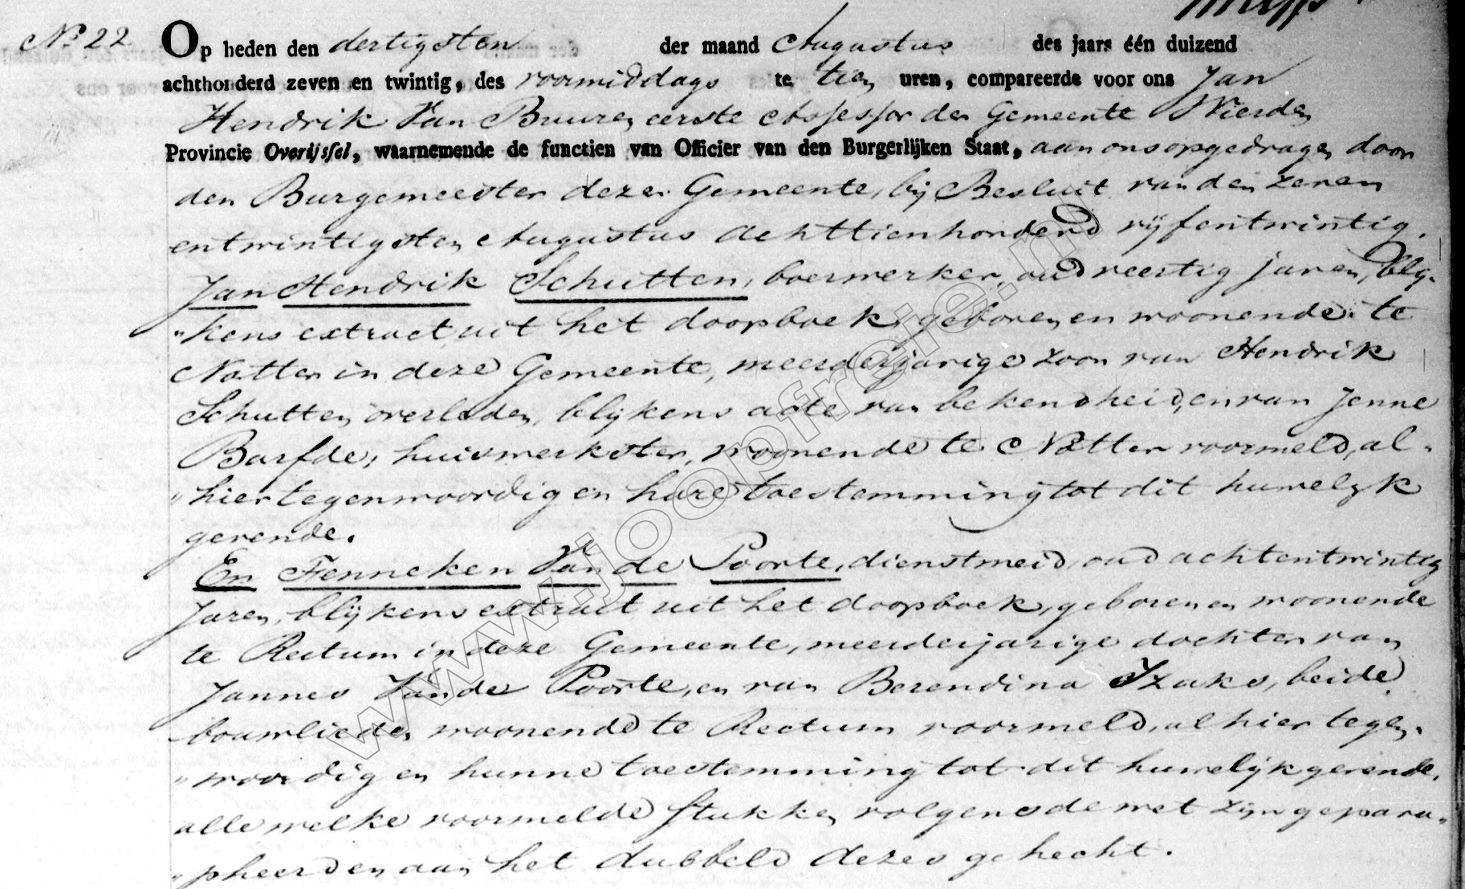 No 22 Op heden den dertigsten der maand Augustus des jaars één duizend
achthonderd zeven en twintig, des voormiddags te tien uren, compareerde voor ons Jan
Hendrik Van Buuren eerste Assessor der Gemeente Wierden
Provincie Overijssel, waarnemende de functien van Officier van den Burgerlijken Staat, aan ons opgedragen door
den Burgemeester dezer Gemeente, bij Besluit van den zeven
entwintigsten Augustus achttienhonderd vijfentwintig.
Jan Hendrik Schutten, boerwerker, oud veertig jaren, bly„
„kens extract uit het doopboek, geboren en woonende te
Notter in deze Gemeente, meerderjarige zoon van Hendrik
Schutten, overleden, blijkens acte van bekendheid, en van Jenne
Barfde, huiswerkster, woonende te Notter voormeld, al„
„hier tegenwoordig en hare toestemming tot dit huwelyk
gevende.
En Fenneken Van de Poorte, dienstmeid, oud achtentwintig
Jaren, blijkens extract uit het doopboek, geboren en woonende
te Rectum in deze Gemeente, meerderjarige dochter van
Jannes Van de Poorte, en van Berendina Izaks, beide
bouwlieden woonende te Rectum voormeld, alhier tegen„
„woordig en hunne toestemming tot dit huwelijk gevende.
alle welke voormelde stukken volgens de wet zijn gepara„
„pheerd en aan het dubbeld dezes gehecht.
www.joopfreie.nl